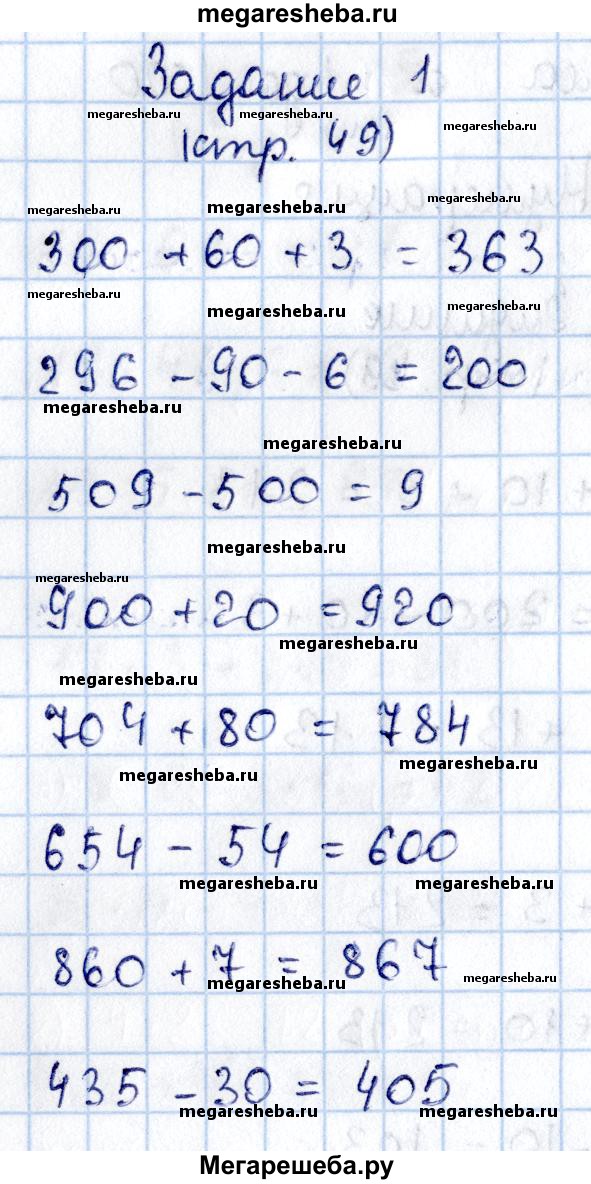 megaresheba.ru
Задание 1
megaresheba.ru megaresheba.ru megaresheba.ru
(стр. 49)
megaresheba.ru megaresheba.ru megaresheba.ru
300 + 60 + 3 = 363
megaresheba.ru megaresheba.ru megaresheba.ru
296 - 90 - 6 = 200
megaresheba.ru
megaresheba.ru
509 - 500 = 9
megaresheba.ru
megaresheba.ru
900 + 20 = 920
megaresheba.ru
megaresheba.ru
704 + 80 = 784
megaresheba.ru megaresheba.ru
654 - 54 = 600
megaresheba.ru megaresheba.ru
860 + 7 = 867
megaresheba.ru megaresheba.ru
435 - 30 = 405
megaresheba.ru megaresheba.ru
Мегарешеба.ру